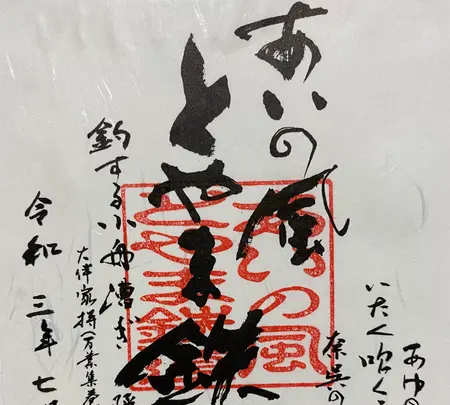 あゆの
いたく吹く
奈呉の
あいの風
とやま鉄
あいの風
とやま鉄
釣する小舟漕ぎ
大伴家持(万葉集巻
令和三年七